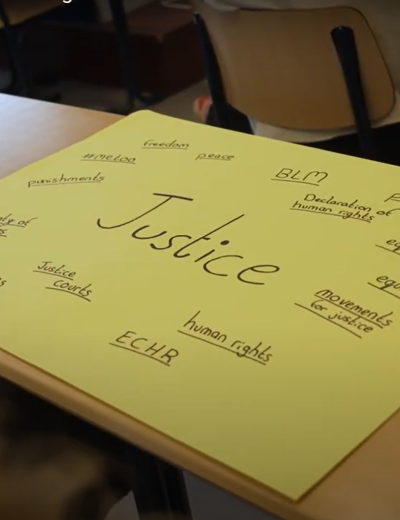 freedom
#metoo
peace
punishments
BLM
Declaration of
human rights
Justice
Justice
courts
movements
for justice
human rights
ECHR